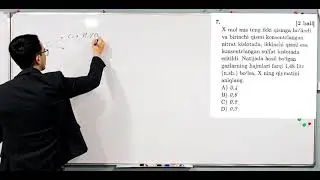 7. [2 ball]
X mol mis teng ikki qismga bo'lindi
va birinchi qismi konsentrlangan
nitrat kislotada, ikkinchi qismi esa
konsentrlangan sulfat kislotada
eritildi. Natijada hosil bo'lgan
gazlarning hajmlari farqi
(n.sh.) bo'lsa, X ning qiymatini
aniqlang.
A) 0,4
B) 0,6
C) 0,8
D)